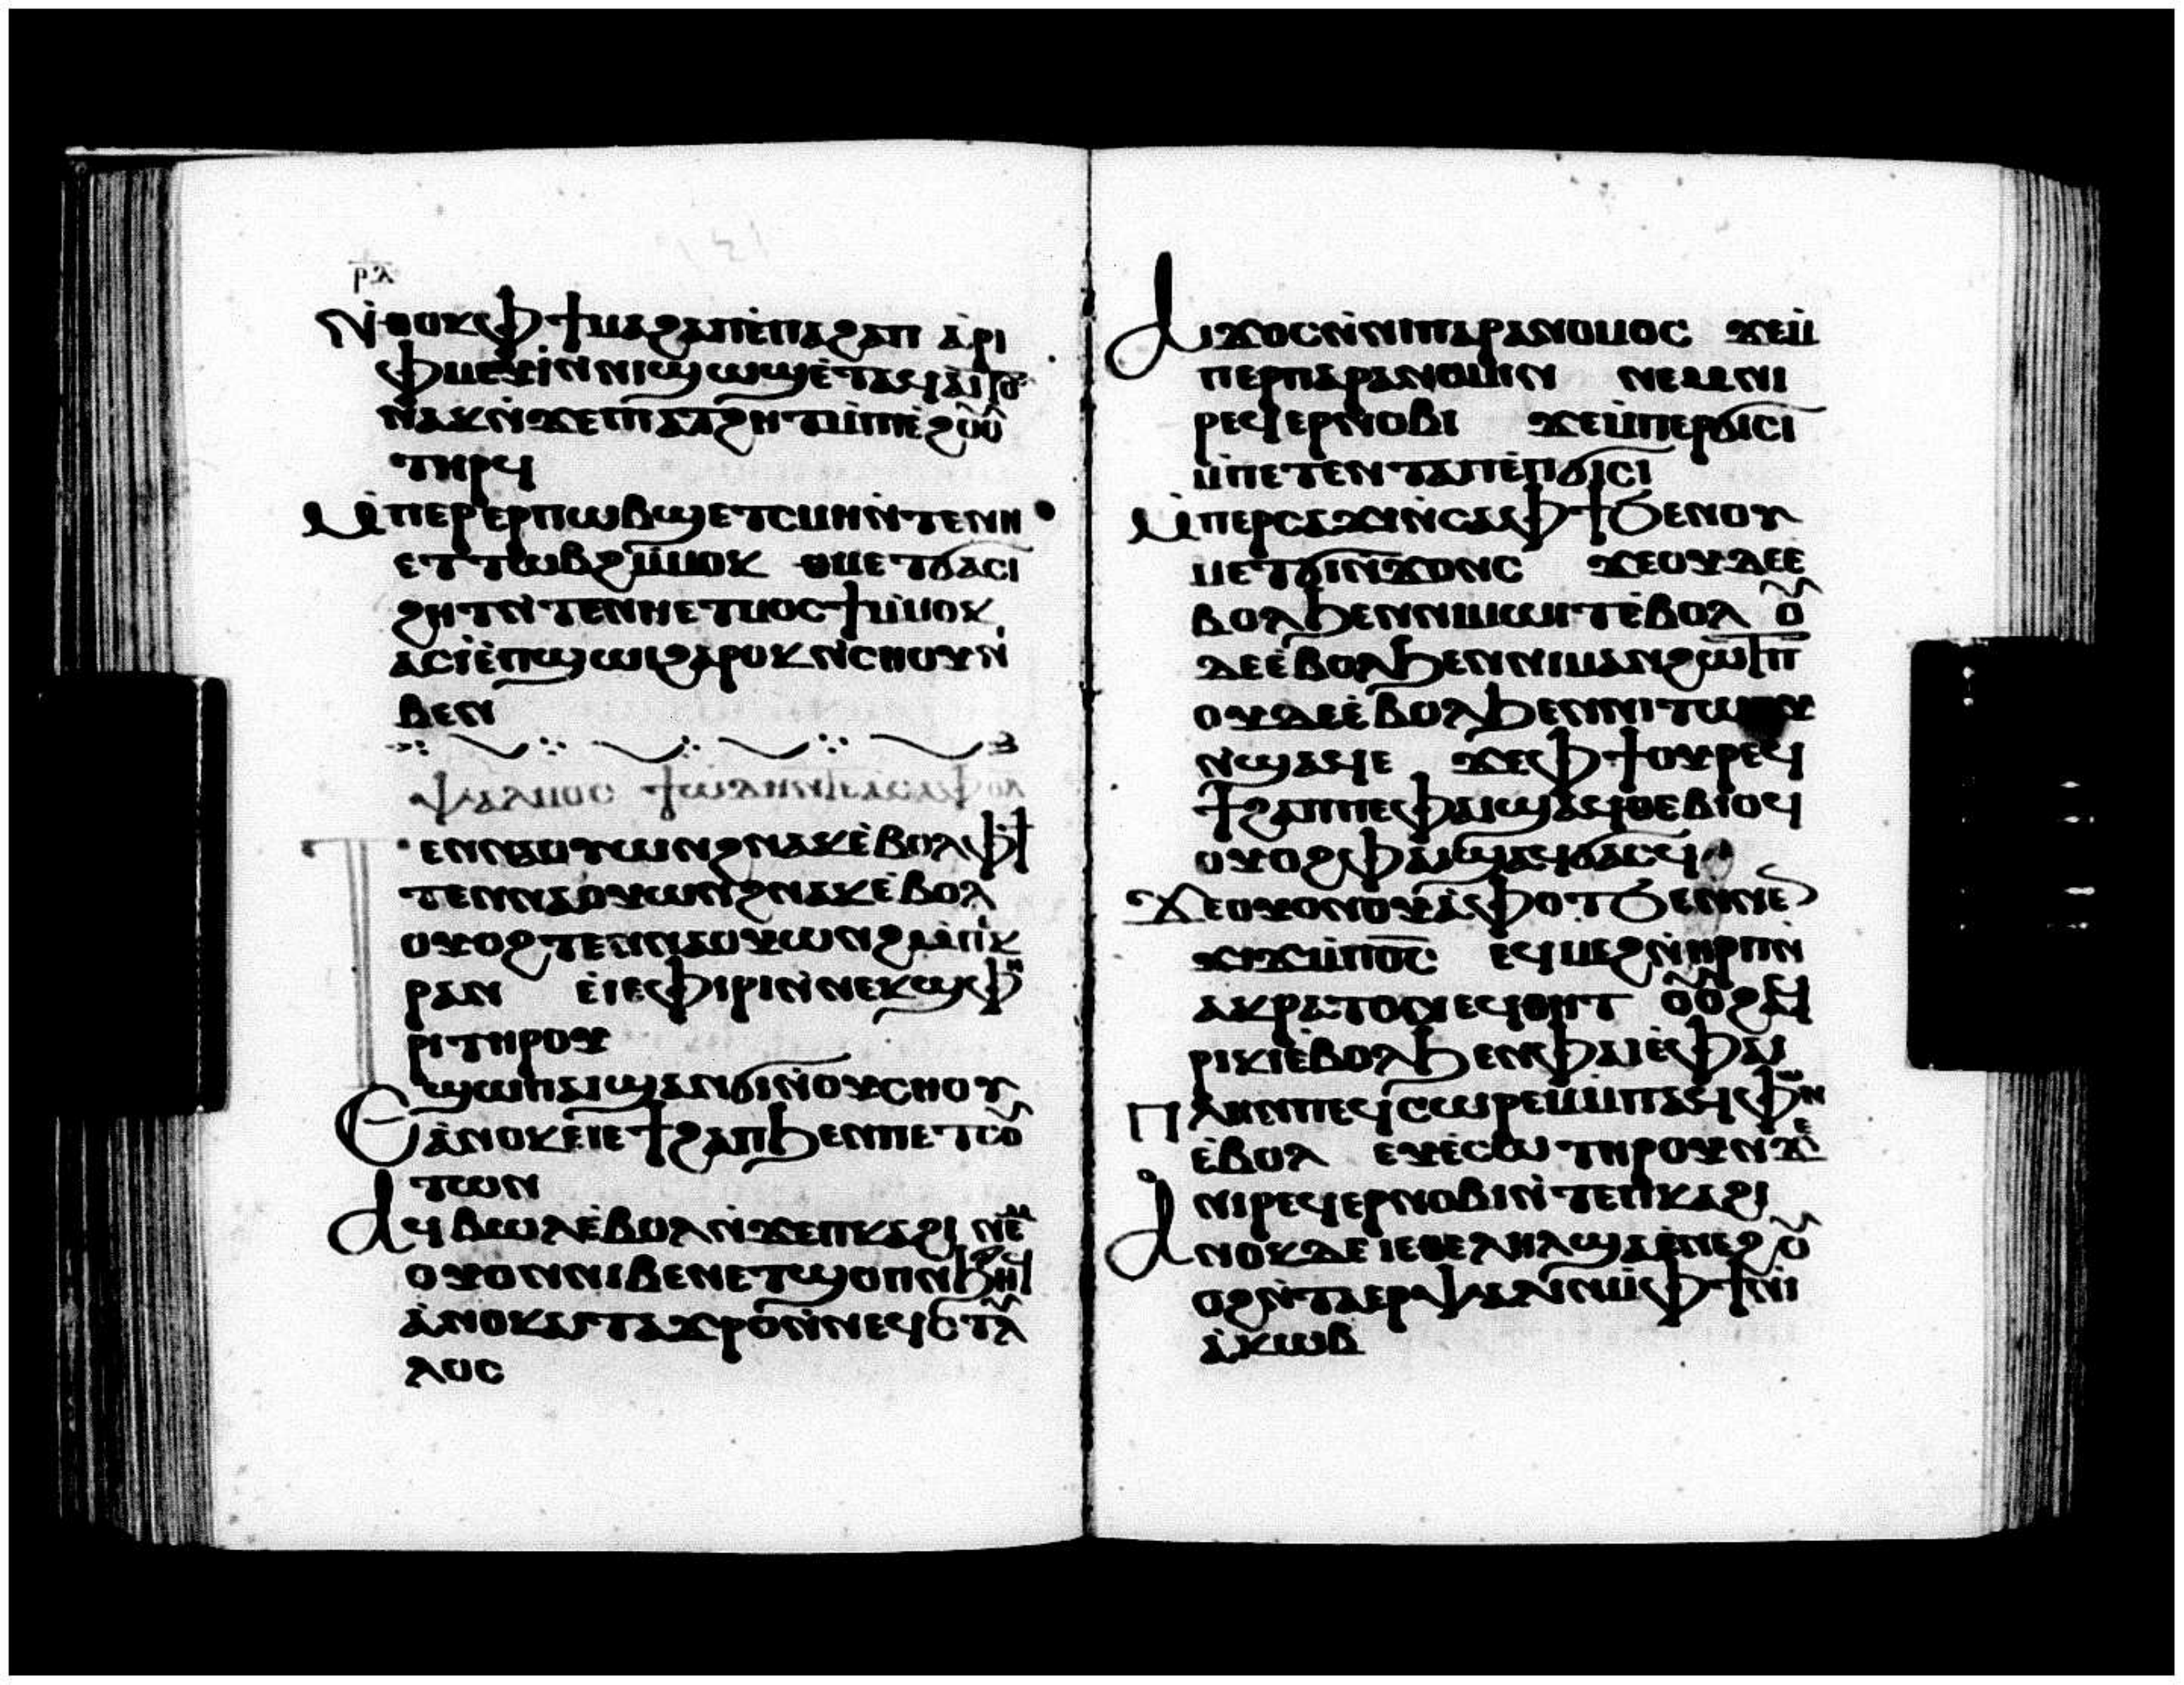 ⲣⲗ
Ⲛ̀ⲑⲟⲕⲫϯⲙⲁϩⲁⲡⲉ̀ⲡⲁϩⲁⲡ ⲁ̀ⲣⲓ
ⲫⲙⲉⲩⲓ̀ⲛⲛⲓϣⲱϣⲉ̀ⲧⲁϥⲁⲓⲧⲟⲩ
ⲛⲁⲕⲛ̀ϫⲉⲡⲓⲁⲧϩⲏⲧⲙ̀ⲡⲓⲉ̀ϩⲟⲟⲩ
ⲧⲏⲣϥ
Ⲙ̀ⲡⲉⲣⲉⲣⲡⲱⲃϣⲉⲧⲥⲙⲏⲛ̀ⲧⲉⲛⲏ
ⲉⲧⲧⲱⲃϩⲙ̀ⲙⲟⲕ ⲑⲙⲉⲧϭⲁⲥⲓ
ϩⲏⲧⲛ̀ⲧⲉⲛⲏⲉⲧⲙⲟⲥϯⲙ̀ⲙⲟⲕ
ⲁⲥⲓ̀ⲉ̀ⲡϣⲱⲓϩⲁⲣⲟⲕⲛ̀ⲥⲏⲟⲩⲛⲓ
ⲃⲉⲛ
ⲯⲁⲗⲙⲟⲥ
ⲧⲉⲛⲛⲁⲟⲩⲱⲛϩⲛⲁⲕⲉ̀ⲃⲟⲗⲫϯ
ⲧⲉⲛⲛⲁⲟⲩⲱⲛϩⲛⲁⲕⲉ̀ⲃⲟⲗ
ⲟⲩⲟϩⲧⲉⲛⲛⲁⲟⲩⲱⲛϩⲙ̀ⲡⲉⲕ
ⲣⲁⲛ ⲉⲓⲉⲫⲓⲣⲓⲛ̀ⲛⲉⲕϣⲫⲏ
ⲣⲓⲧⲏⲣⲟⲩ
Ⲉϣⲱⲡⲁⲓϣⲁⲛϭⲓⲛ̀ⲟⲩⲥⲏⲟⲩ
ⲁ̀ⲛⲟⲕⲉⲓⲉϯϩⲁⲡϧⲉⲛⲡⲉⲧⲥⲟⲩ
ⲧⲱⲛ
Ⲁϥⲃⲱⲗⲉ̀ⲃⲟⲗⲛ̀ϫⲉⲡⲕⲁϩⲓ ⲛⲉⲙ
ⲟⲩⲟⲛⲛⲓⲃⲉⲛⲉⲧϣⲟⲡⲛ̀ϧⲏⲧϥ
ⲁ̀ⲛⲟⲕⲁⲓⲧⲁϫⲣⲟⲛ̀ⲛⲉϥⲥⲧⲩⲗ
ⲗⲟⲥ
Ⲁⲓϫⲟⲥⲛ̀ⲛⲓⲡⲁⲣⲁⲛⲟⲙⲟⲥ ϫⲉⲙ̀
ⲡⲉⲣⲡⲁⲣⲁⲛⲟⲙⲓⲛ ⲛⲉⲙⲛⲓ
ⲣⲉϥⲉⲣⲛⲟⲃⲓ ϫⲉⲙ̀ⲡⲉⲣϭⲓⲥⲓ
ⲙ̀ⲡⲉⲧⲉⲛⲧⲁⲡⲉ̀ⲡϭⲓⲥⲓ
Ⲙ̀ⲡⲉⲣⲥⲁϫⲓⲛ̀ⲥⲁⲫϯϧⲉⲛⲟⲩ
ⲙⲉⲧϭⲓⲛ̀ϫⲟⲛⲥ ϫⲉⲟⲩⲇⲉⲉ̀
ⲃⲟⲗϧⲉⲛⲛⲓⲙⲱⲓⲧⲉ̀ⲃⲟⲗ ⲟⲩ
ⲇⲉⲉ̀ⲃⲟⲗϧⲉⲛⲛⲓⲙⲁⲛϩⲱⲧⲡ
ⲟⲩⲇⲉⲉ̀ⲃⲟⲗϧⲉⲛⲛⲓⲧⲱⲟⲩ
ⲛ̀ϣⲁϥⲉ ϫⲉⲫϯⲟⲩⲣⲉϥ
ϯϩⲁⲡⲡⲉⲫⲁⲓϣⲁϥⲑⲉⲃⲓⲟϥ
ⲟⲩⲟϩⲫⲁⲓϣⲁϥϭⲁⲥϥ
Ϫⲉⲟⲩⲟⲛⲟⲩⲁ̀ⲫⲟⲧϧⲉⲛⲛⲉ
ϫⲓϫⲙ̀ⲡⲟ̅ⲥ̅ ⲉϥⲙⲉϩⲛ̀ⲏⲣⲡⲛ̀
ⲁⲕⲣⲁⲧⲟⲛⲉϥⲑⲏⲧ ⲟⲩⲟϩⲁϥ
ⲣⲓⲕⲓⲉ̀ⲃⲟⲗϧⲉⲛⲫⲁⲓⲉ̀ⲫⲁⲓ
Ⲡⲗⲏⲛⲡⲉϥⲥⲱⲣⲉⲙⲙ̀ⲡⲁϥⲫⲱⲛ
ⲉ̀ⲃⲟⲗ ⲉⲩⲉ̀ⲥⲱⲧⲏⲣⲟⲩⲛ̀ϫⲉ
ⲛⲓⲣⲉϥⲉⲣⲛⲟⲃⲓⲛ̀ⲧⲉⲡⲕⲁϩⲓ
Ⲁⲛⲟⲕⲇⲉⲓⲉⲑⲉⲗⲏⲗϣⲁⲉ̀ⲛⲉϩ ⲟⲩ
ⲟϩⲛ̀ⲧⲁⲉⲣⲯⲁⲗⲓⲛⲙ̀ⲫϯⲛⲓ
ⲁ̀ⲕⲱⲃ